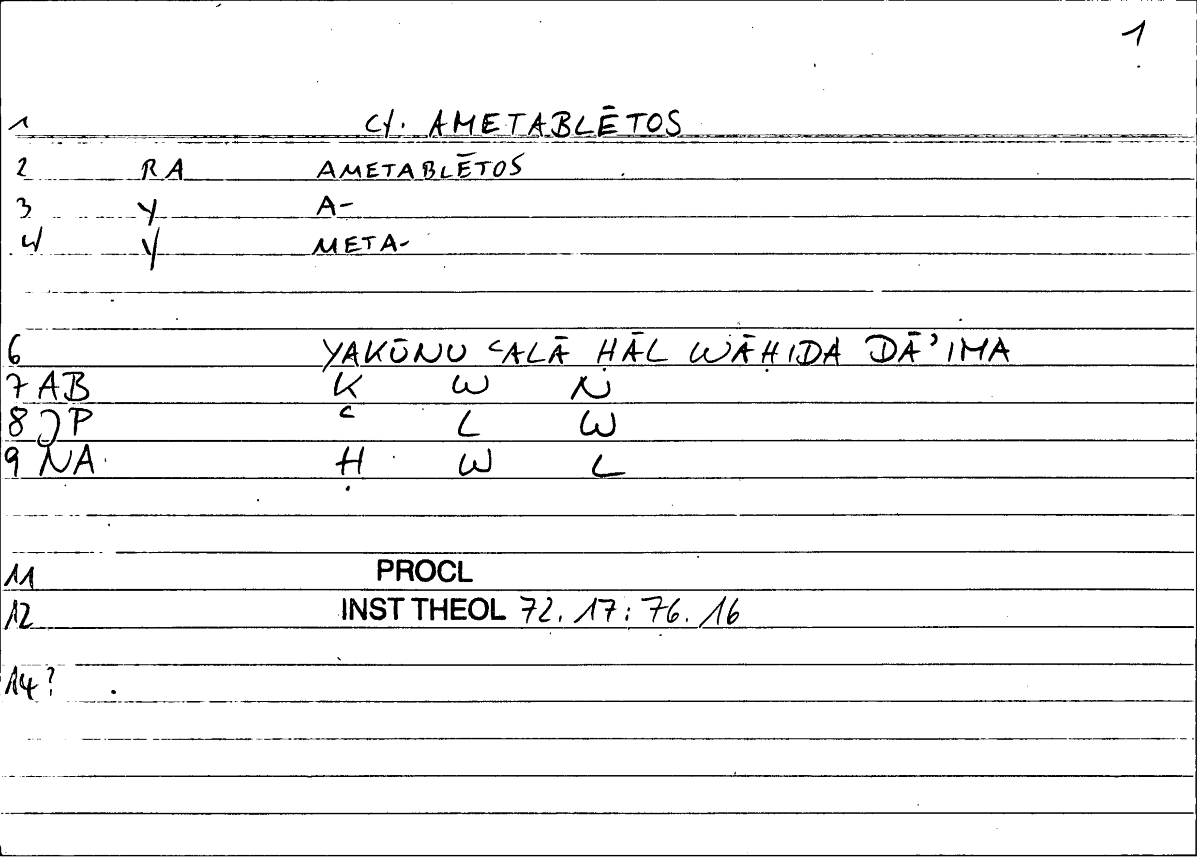 1
1 cf. AMETABLĒTOS
2 RA AMETABLĒTOS
3 Y A-
4 Y META-
6 YAKŪNU ʿALĀ ḤĀL WĀḤIDA DĀʾIMA
7 AB K W N
8 JP ʿ L W
9 NA Ḥ W L
11 PROCL
12 INST THEOL 72.17:76.16
14?